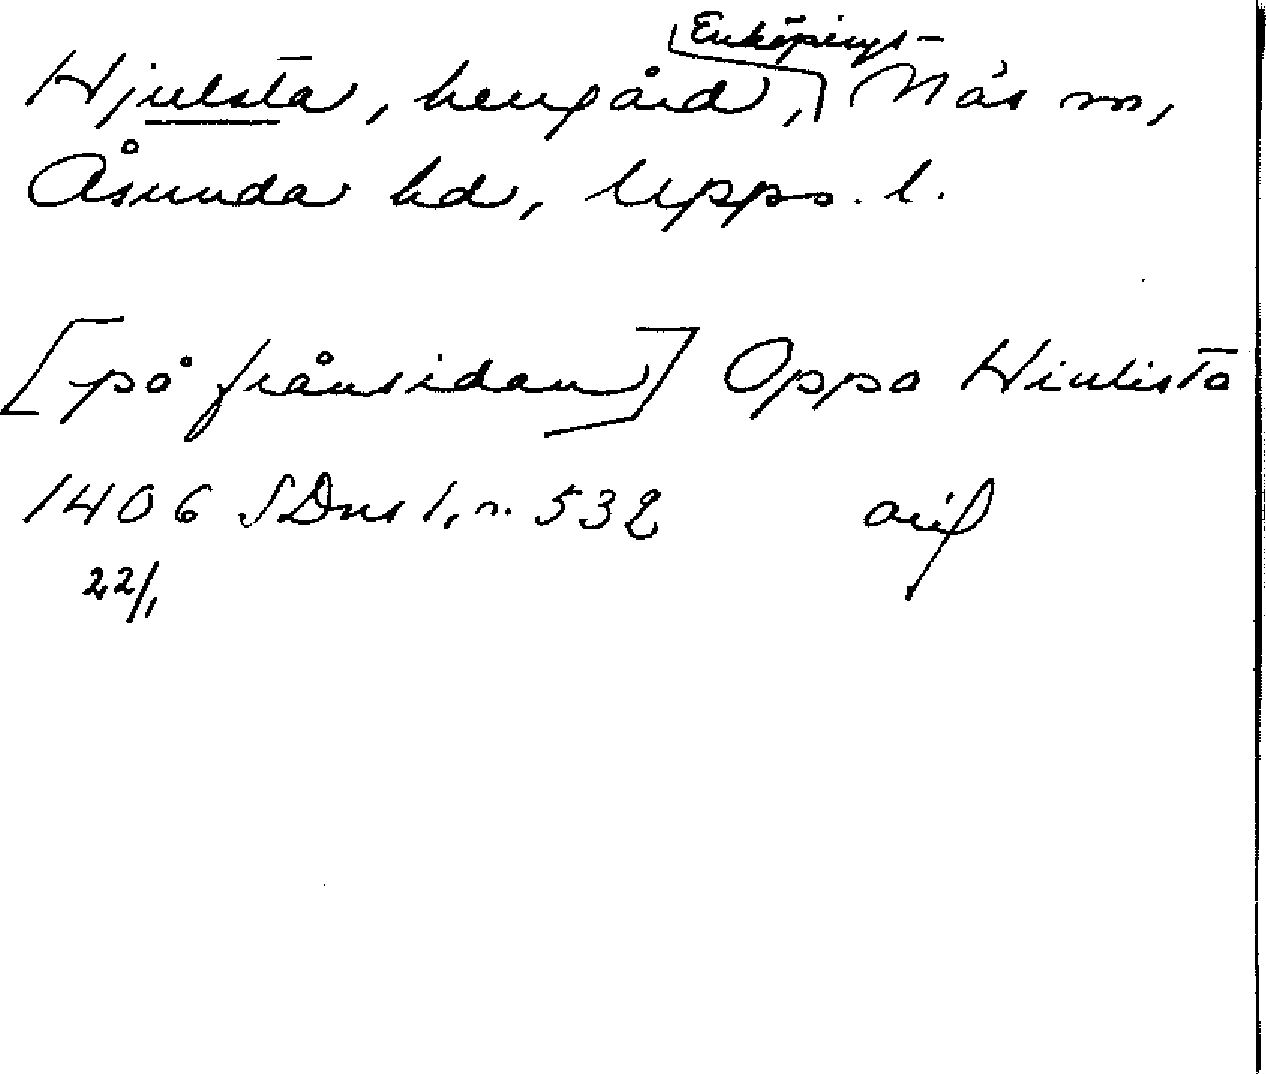 Hjulsta, herrgård, Enköpings- Näs sn,
Åsunda hd, Upps. l.
[på frånsidan] Oppa Hiulista
1406 SDns 1, n. 532 orig
22/1